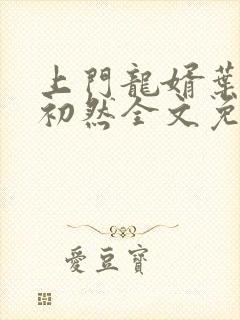 上門龍婿葉
初然全文免
愛豆寶